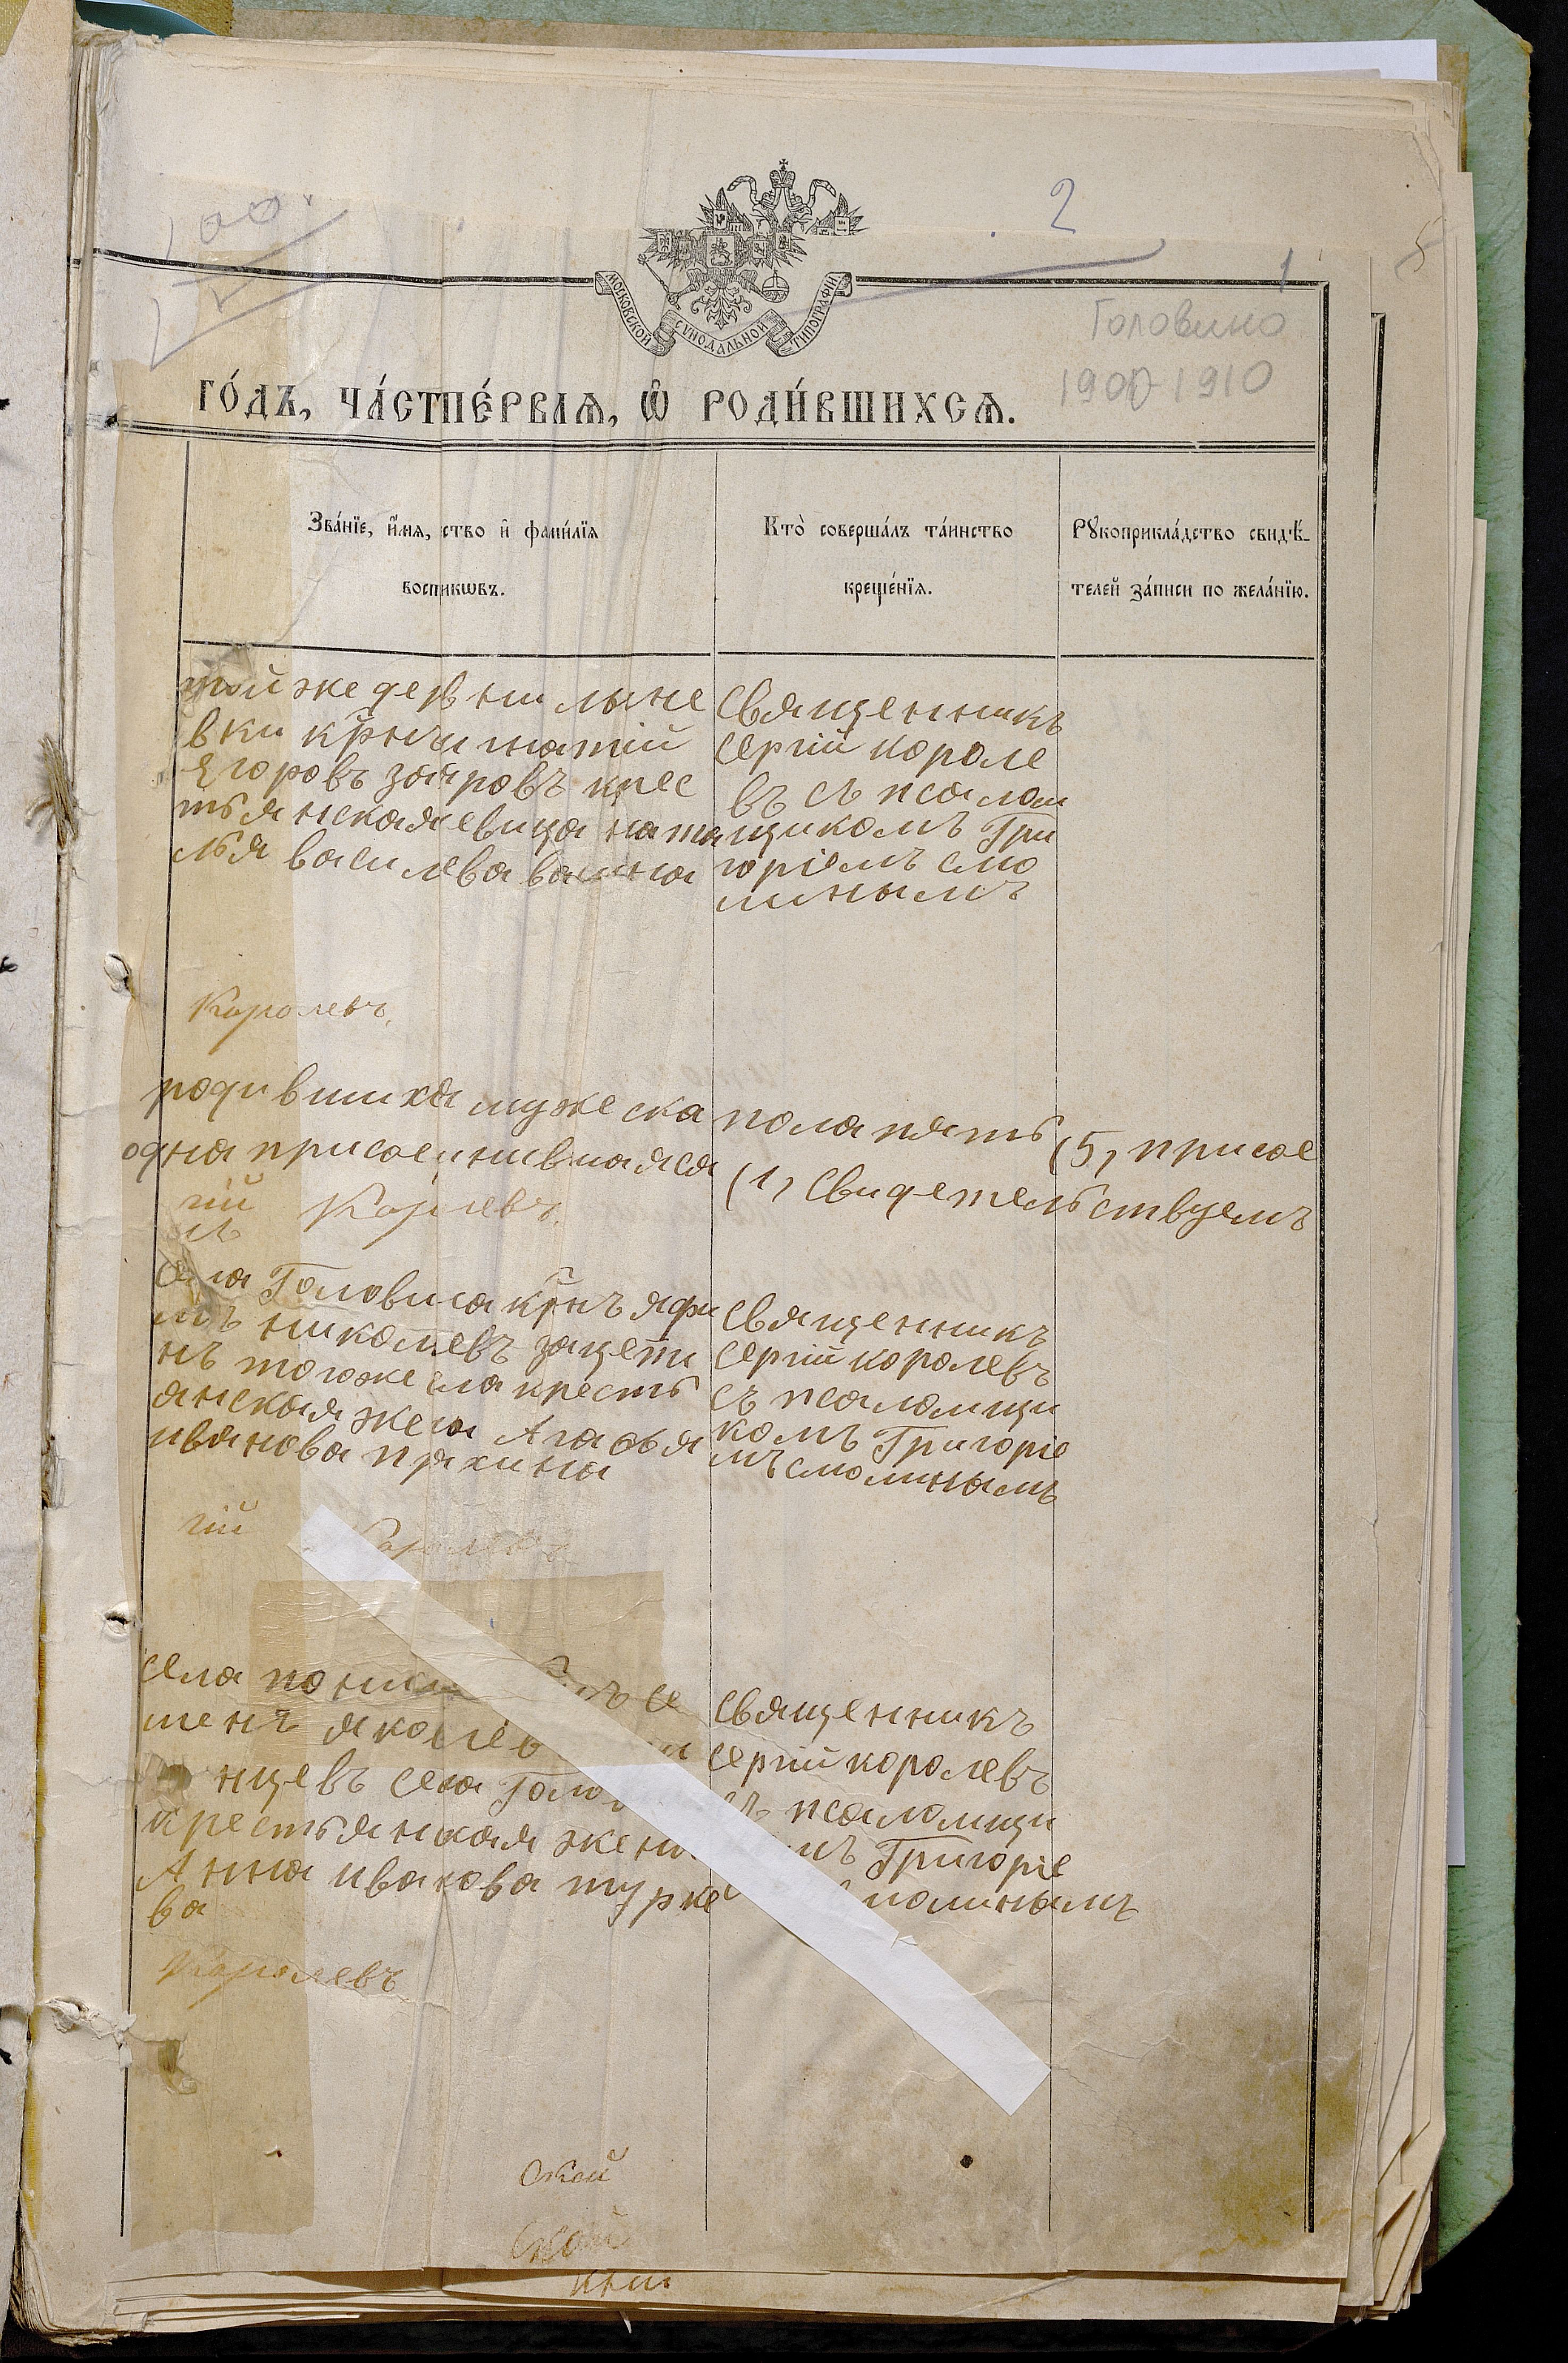 100
2
1
5
МОСКОВСКОЙ СУНОДАЛЬНОЙ ТИПОГРАФІИ
Головино
1900-1910
ГО́ДЪ, ЧА́СТПЕ́РВАЯ, Ѽ РОДИ́ВШИХСЯ.
Зва́нїе, и҆́мя, ство и҆ фами́лїя
воспикѡвъ.
Кто̀ соверша́лъ та́инство
креще́нїя.
Рꙋкоприкла́дство свидѣ́-
телей за́писи по жела́нїю.
той же деревни лыне
вки крнъ игнатій
Егоровъ крес
тьянская евица ната
лья василева
Священникъ
сергій короле
въ съ псалом
щикомъ Гри
горіемъ смо
линымъ
Королевъ
родившихся мужеска пола пять (5, присое
одна присоединившаяся (1, Свидетельствуемъ
гій Королевъ
села Головина крнъ яфи
мъ николаевъ
нъ тогоже ела кресть
янская жена Агафья
иванова пряхина
Священникъ
сергій королевъ
съ псаломщи
комъ Григоріе
мъ смолинымъ
гій Королевъ
села се
менъ яковлев
нцевъ села Голов
крестьянская жена
Анна иванова турке
ва
Священникъ
сергій королевъ
съ псаломщи
мъ Григоріе
молинымъ
Королевъ
ской
ской